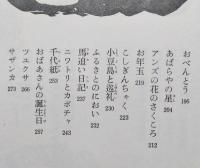 おべんとう 196
あばらやの星 204
アンズの花のさくころ 212
お年玉 219
こしぎんちゃく 223
小豆島と巡礼 230
ふるさとのにおい 232
馬追い日記 237
ニワトリとカボチャ 243
千代紙 253
おばあさんの誕生日 257
ツユクサ 266
サザンカ 273